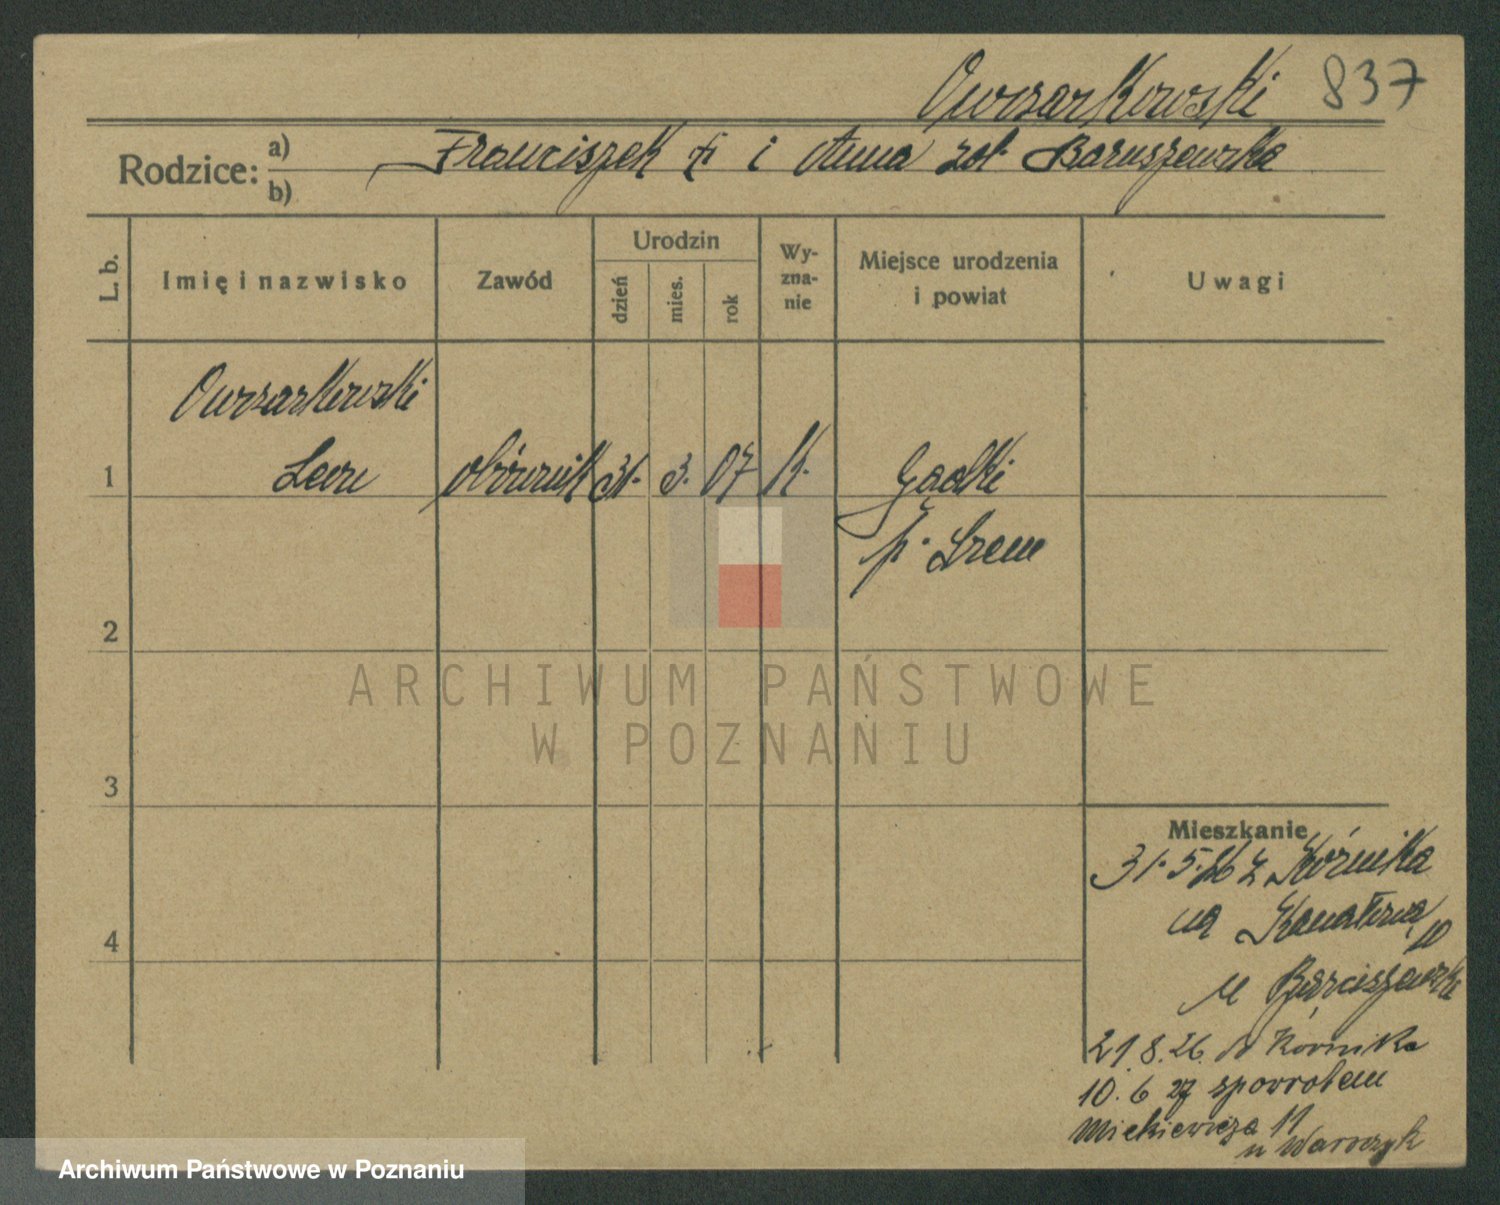 Owczarkowski 837
Rodzice: a) Franciszek † i Anna zd. Baruszewska
b)
L. b.
Imię i nazwisko
Zawód
Urodzin
dzień
mies.
rok
Wy-
zna-
nie
Miejsce urodzenia
i powiat
Uwagi
Owczarkowski
1 Leon obównik 31. 3. 07 k. Gądki
p. Śrem
2
3
4
Mieszkanie
31.5.26 z Kórnika
na Kanałową
10
u
21.8.26. do Kórnika
10.6 27 spowrotem
Mickiewicza 11
u Wawrzyk
ARCHIWUM PAŃSTWOWE
W POZNANIU
Archiwum Państwowe w Poznaniu